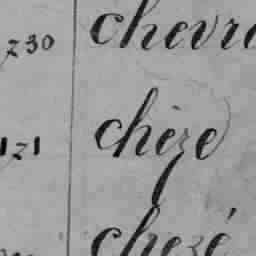 230 chevre
121 chèze
chezé